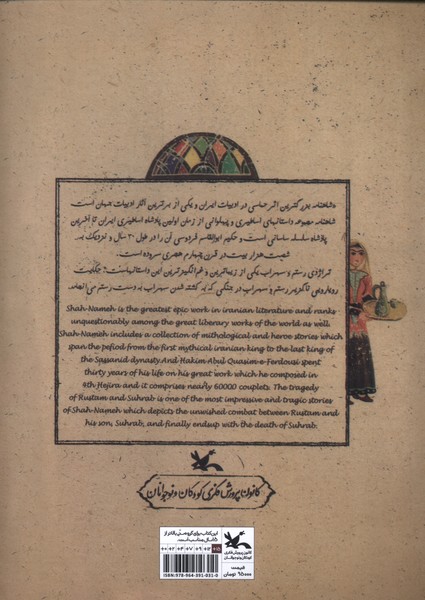 شاهنامه بزرگترین اثر حماسی در ادبیات ایران و یکی از برترین آثار ادبیات جهان است
شاهنامه مجموعه داستانهای اساطیری و پهلوانی از زمان اولین پادشاه اساطیری ایران تا آخرین
پادشاه سلسله ساسانی است و حکیم ابوالقاسم فردوسی آن را در طول ۳۰ سال و نزدیک به
شصت هزار بیت در قرن چهارم هجری سروده است.
تراژدی رستم و سهراب یکی از زیباترین و غم‌انگیزترین این داستانهاست؛ حکایت
رویارویی ناگزیر رستم و سهراب در جنگی که به کشته شدن سهراب به دست رستم می‌انجامد.
Shah-Nameh is the greatest epic work in iranian literature and ranks
unquestionably among the great liberary works of the world as well.
Shah-Nameh includes a collection of mithological and heroe stories which
span the pefiod from the first mythical iranian king to the last king of
the Sassanid dynasty.And Hakim Abul Quasim-e-Ferdousi spent
thirty years of his life on his great work which he composed in
4th Hejira and it comprises nearly 60000 couplets. The tragedy
of Rustam and Suhrab is one of the most impressive and tragic stories
of Shah-Nameh which depicts the unwished combat between Rustam and
his son, Suhrab, and finally endsup with the death of Suhrab.
کانون پرورش فکری کودکان و نوجوانان
این کتاب برای گروه سنی بالاتر از
۱۵ سال مناسب است.
۰+ ۲+ ۴+ ۷+ ۹+ ۱۲+ ۱۵+
ISBN: 978-964-391-031-0
کانون پرورش فکری
کودکان و نوجوانان
قیمت:
۹۵۰۰۰ تومان